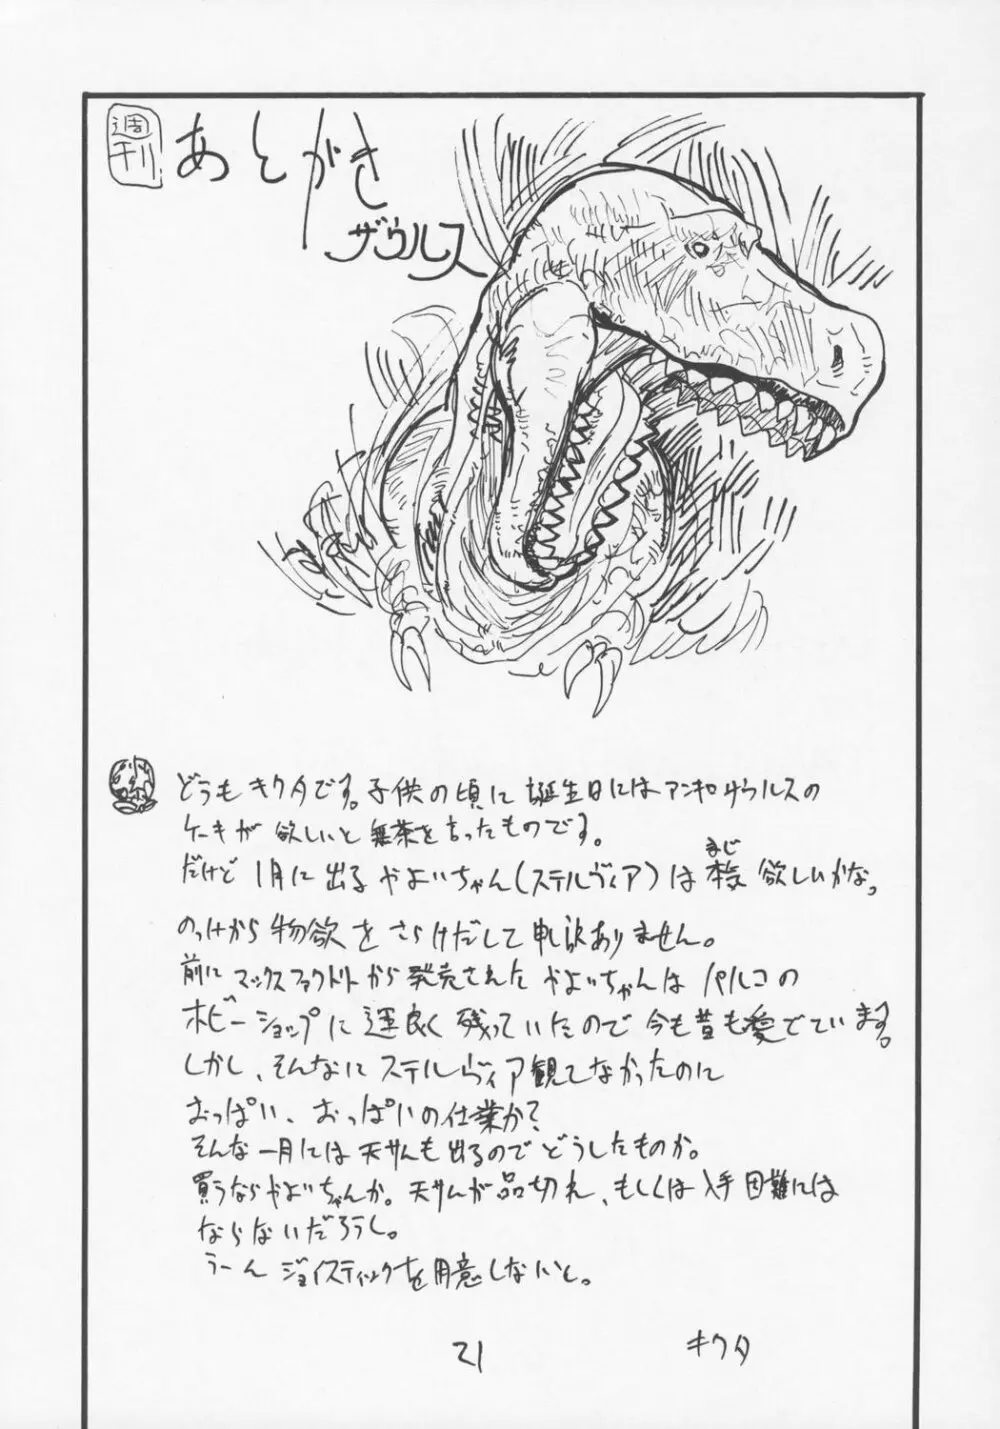 週刊
あとがき
ザウルス
どうもキクタです。子供の頃に誕生日にはアンキロザウルスの
ケーキが欲しいと無茶を言ったものです。
だけど1月に出るやよいちゃん(ステルヴィア)は本気欲しいかな。
まじ
のっけから物欲をさらけだして申し訳ありません。
前にマックスファクトリーから発売されたやよいちゃんはパルコの
ホビーショップに運良く残っていたので今も昔も愛でています。
しかし、そんなにステルヴィア観てなかったのに
おっぱい、おっぱいの仕業か?
そんな一月には天サムも出るのでどうしたものか。
買うならやよいちゃんか。天サムが品切れ、もしくは入手困難には
ならないだろうし。
うーんジョイスティックを用意しないと。
キクタ
21